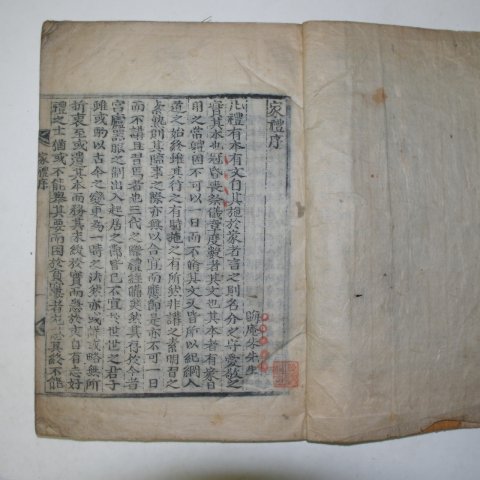 家禮序
晦庵朱先生
凡禮有本有文自其施於家者言之則名分之守愛敬之
實其本也冠昏喪祭儀章度數者其文也其本者有家日
用之常體固不可以一日而不脩其文又皆所以紀綱人
道之始終雖其行之有時施之有所然非講之素明習之
素熟則其臨事之際亦無以合宜而應節是亦不可一日
而不講且習焉者也三代之際禮經備矣然其存於今者
宮廬器服之制出入起居之節皆已不宜於世世之君子
雖或酌以古今之變更爲一時之法然亦或詳或略無所
折衷至或遺其本而務其末緩於實而急於文自有志好
禮之士猶或不能擧其要而困於貧窶者尤患其終不能
家禮序